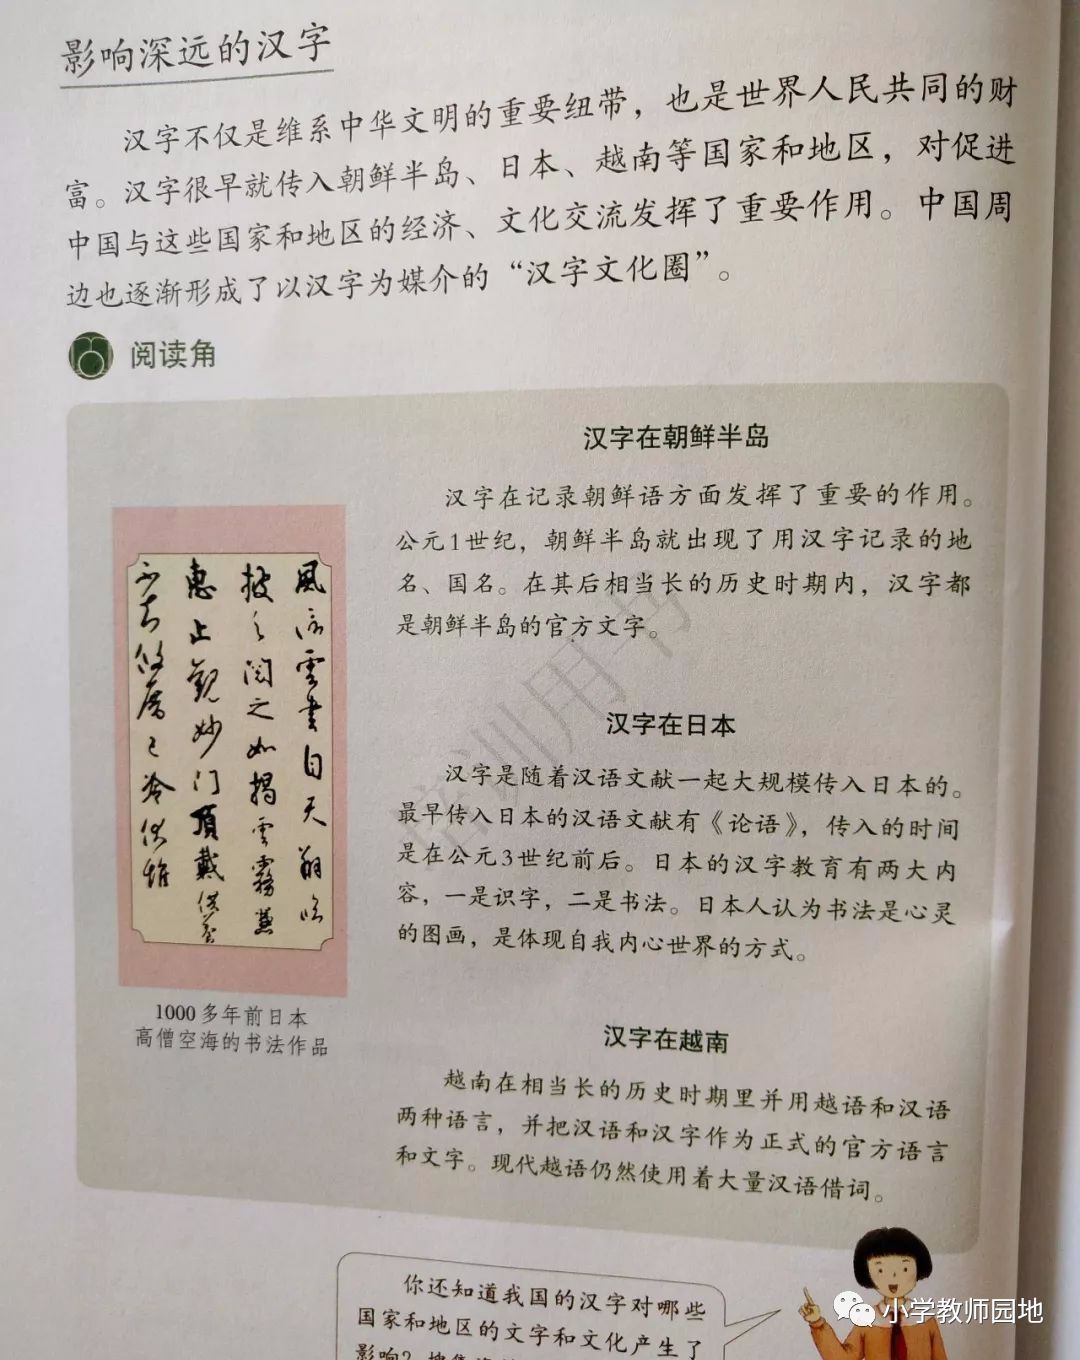 影响深远的汉字
汉字不仅是维系中华文明的重要纽带，也是世界人民共同的财
富。汉字很早就传入朝鲜半岛、日本、越南等国家和地区，对促进
中国与这些国家和地区的经济、文化交流发挥了重要作用。中国周
边也逐渐形成了以汉字为媒介的“汉字文化圈”。
阅读角
汉字在朝鲜半岛
汉字在记录朝鲜语方面发挥了重要的作用。
公元1世纪，朝鲜半岛就出现了用汉字记录的地
名、国名。在其后相当长的历史时期内，汉字都
是朝鲜半岛的官方文字。
風信雲書自天翔臨
披之閱之如揭雲霧兼
惠止觀妙门頂戴供養
不知攸厝已冷伏惟
1000多年前日本
高僧空海的书法作品
汉字在日本
汉字是随着汉语文献一起大规模传入日本的。
最早传入日本的汉语文献有《论语》，传入的时间
是在公元3世纪前后。日本的汉字教育有两大内
容，一是识字，二是书法。日本人认为书法是心灵
的图画，是体现自我内心世界的方式。
汉字在越南
越南在相当长的历史时期里并用越语和汉语
两种语言，并把汉语和汉字作为正式的官方语言
和文字。现代越语仍然使用着大量汉语借词。
培训用书
你还知道我国的汉字对哪些
国家和地区的文字和文化产生了
影响？搜集
小学教师园地